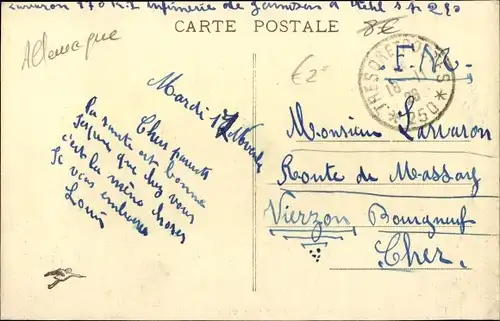 Lavaron 170 R.I. Infirmerie de Garnison à Kehl s.p 290
CARTE POSTALE
Allemagne
8€
€2
F.M.
TRESOR ET POSTES
18 - 11
* 250 *
Mardi 17 Novembre
Chers parents
La santé est bonne
j'espère que chez vous
c'est la même chose
Je vous embrasse
Louis
Monsieur Lavaron
Route de Massay
Vierzon Bourgneuf
Cher.